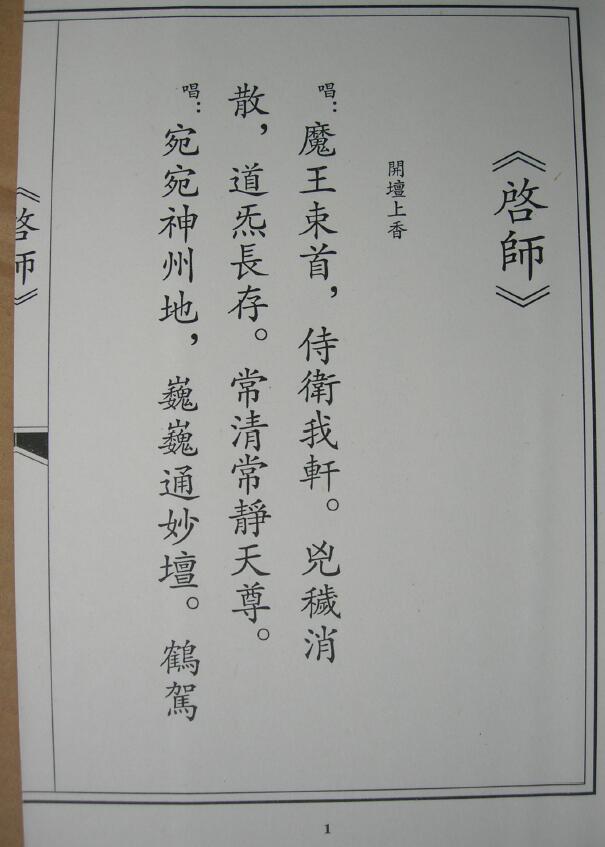 《啓師》
開壇上香
唱：魔王束首，侍衛我軒。兇穢消
散，道炁長存。常清常靜天尊。
唱：宛宛神州地，巍巍通妙壇。鶴駕
《啓師》
1